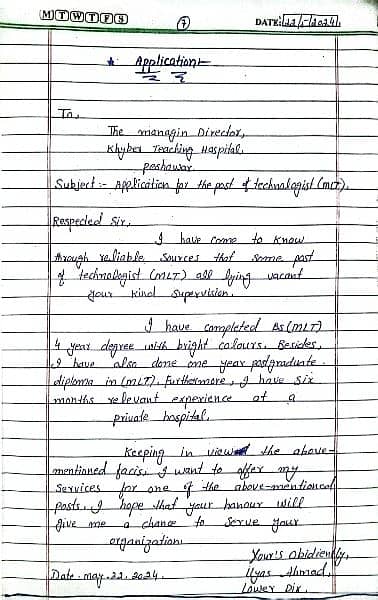 M T W T F S
7
DATE: 22/5/2024
* Application
To,
The managin Director,
Khyber Teaching Hospital,
Peshawar
Subject:- Application for the post of technologist (MLT).
Respected Sir,
I have come to know
through reliable Sources that some post
of technologist (MLT) all lying vacant
your kind supervision.
I have completed BS (MLT)
4 year degree with bright colours. Besides,
I have also done one year postgraduate
diploma in (MLT). Furthermore, I have six
months relevant experience at a
private hospital,
Keeping in view the above-
mentioned facts, I want to offer my
Services for one of the above-mentioned
posts. I hope that your honour will
give me a chance to serve your
organization
Your's Obidiently,
Date. may. 22. 2024. Ilyas Ahmad,
Lower Dir.